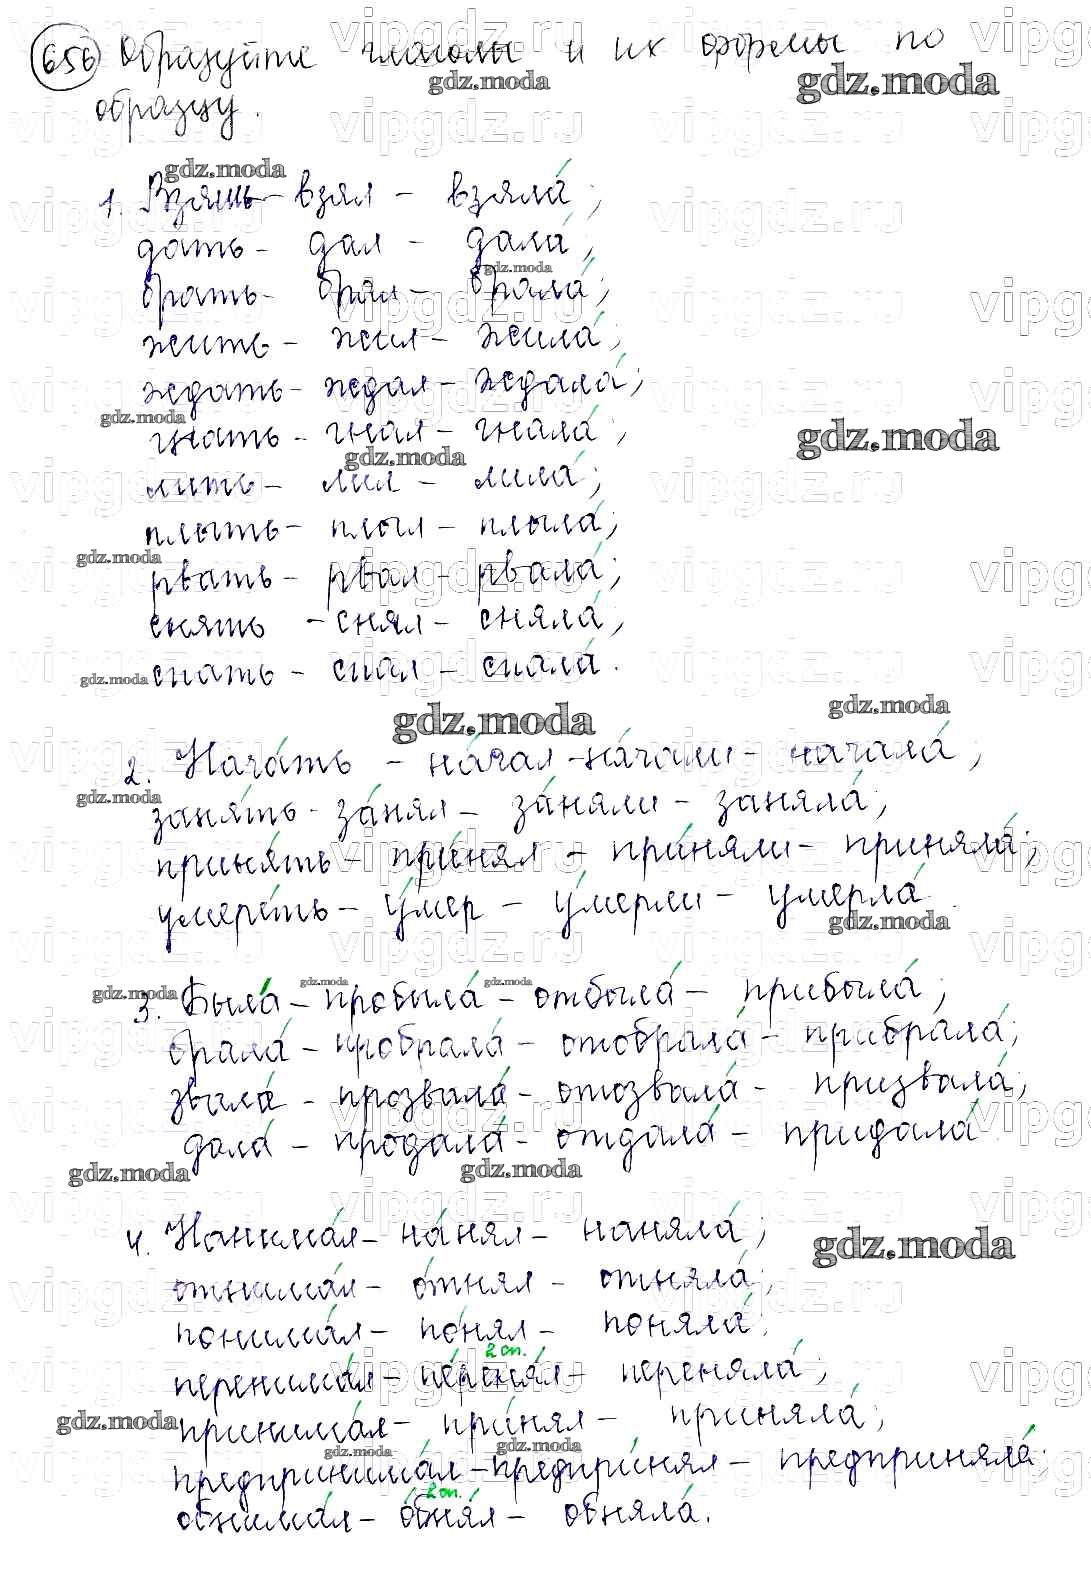 656 Образуйте глаголы и их формы по
образцу.
1. Взять - взял - взяла́;
дать - дал - дала́;
брать - брал - брала́;
жить - жил - жила́;
ждать - ждал - ждала́;
гнать - гнал - гнала́;
лить - лил - лила́;
плыть - плыл - плыла́;
рвать - рвал - рвала́;
снять - снял - сняла́;
спать - спал - спала́.
2. Нача́ть - на́чал - на́чали - начала́;
заня́ть - за́нял - за́няли - заняла́;
приня́ть - при́нял - при́няли - приняла́;
умере́ть - у́мер - у́мерли - умерла́.
3. Была́ - пробыла́ - отбыла́ - прибыла́;
брала́ - пробрала́ - отобрала́ - прибрала́;
звала́ - прозвала́ - отозвала́ - призвала́;
дала́ - продала́ - отдала́ - придала́
4. Нанима́л - на́нял - наняла́;
отнима́л - о́тнял - отняла́;
понима́л - по́нял - поняла́;
2 сп.
перенима́л - пе́реня́л - переняла́;
принима́л - при́нял - приняла́;
предпринима́л - предпри́нял - предприняла́;
2 сп.
обнима́л - о́бня́л - обняла́.
gdz.moda
vipgdz.ru